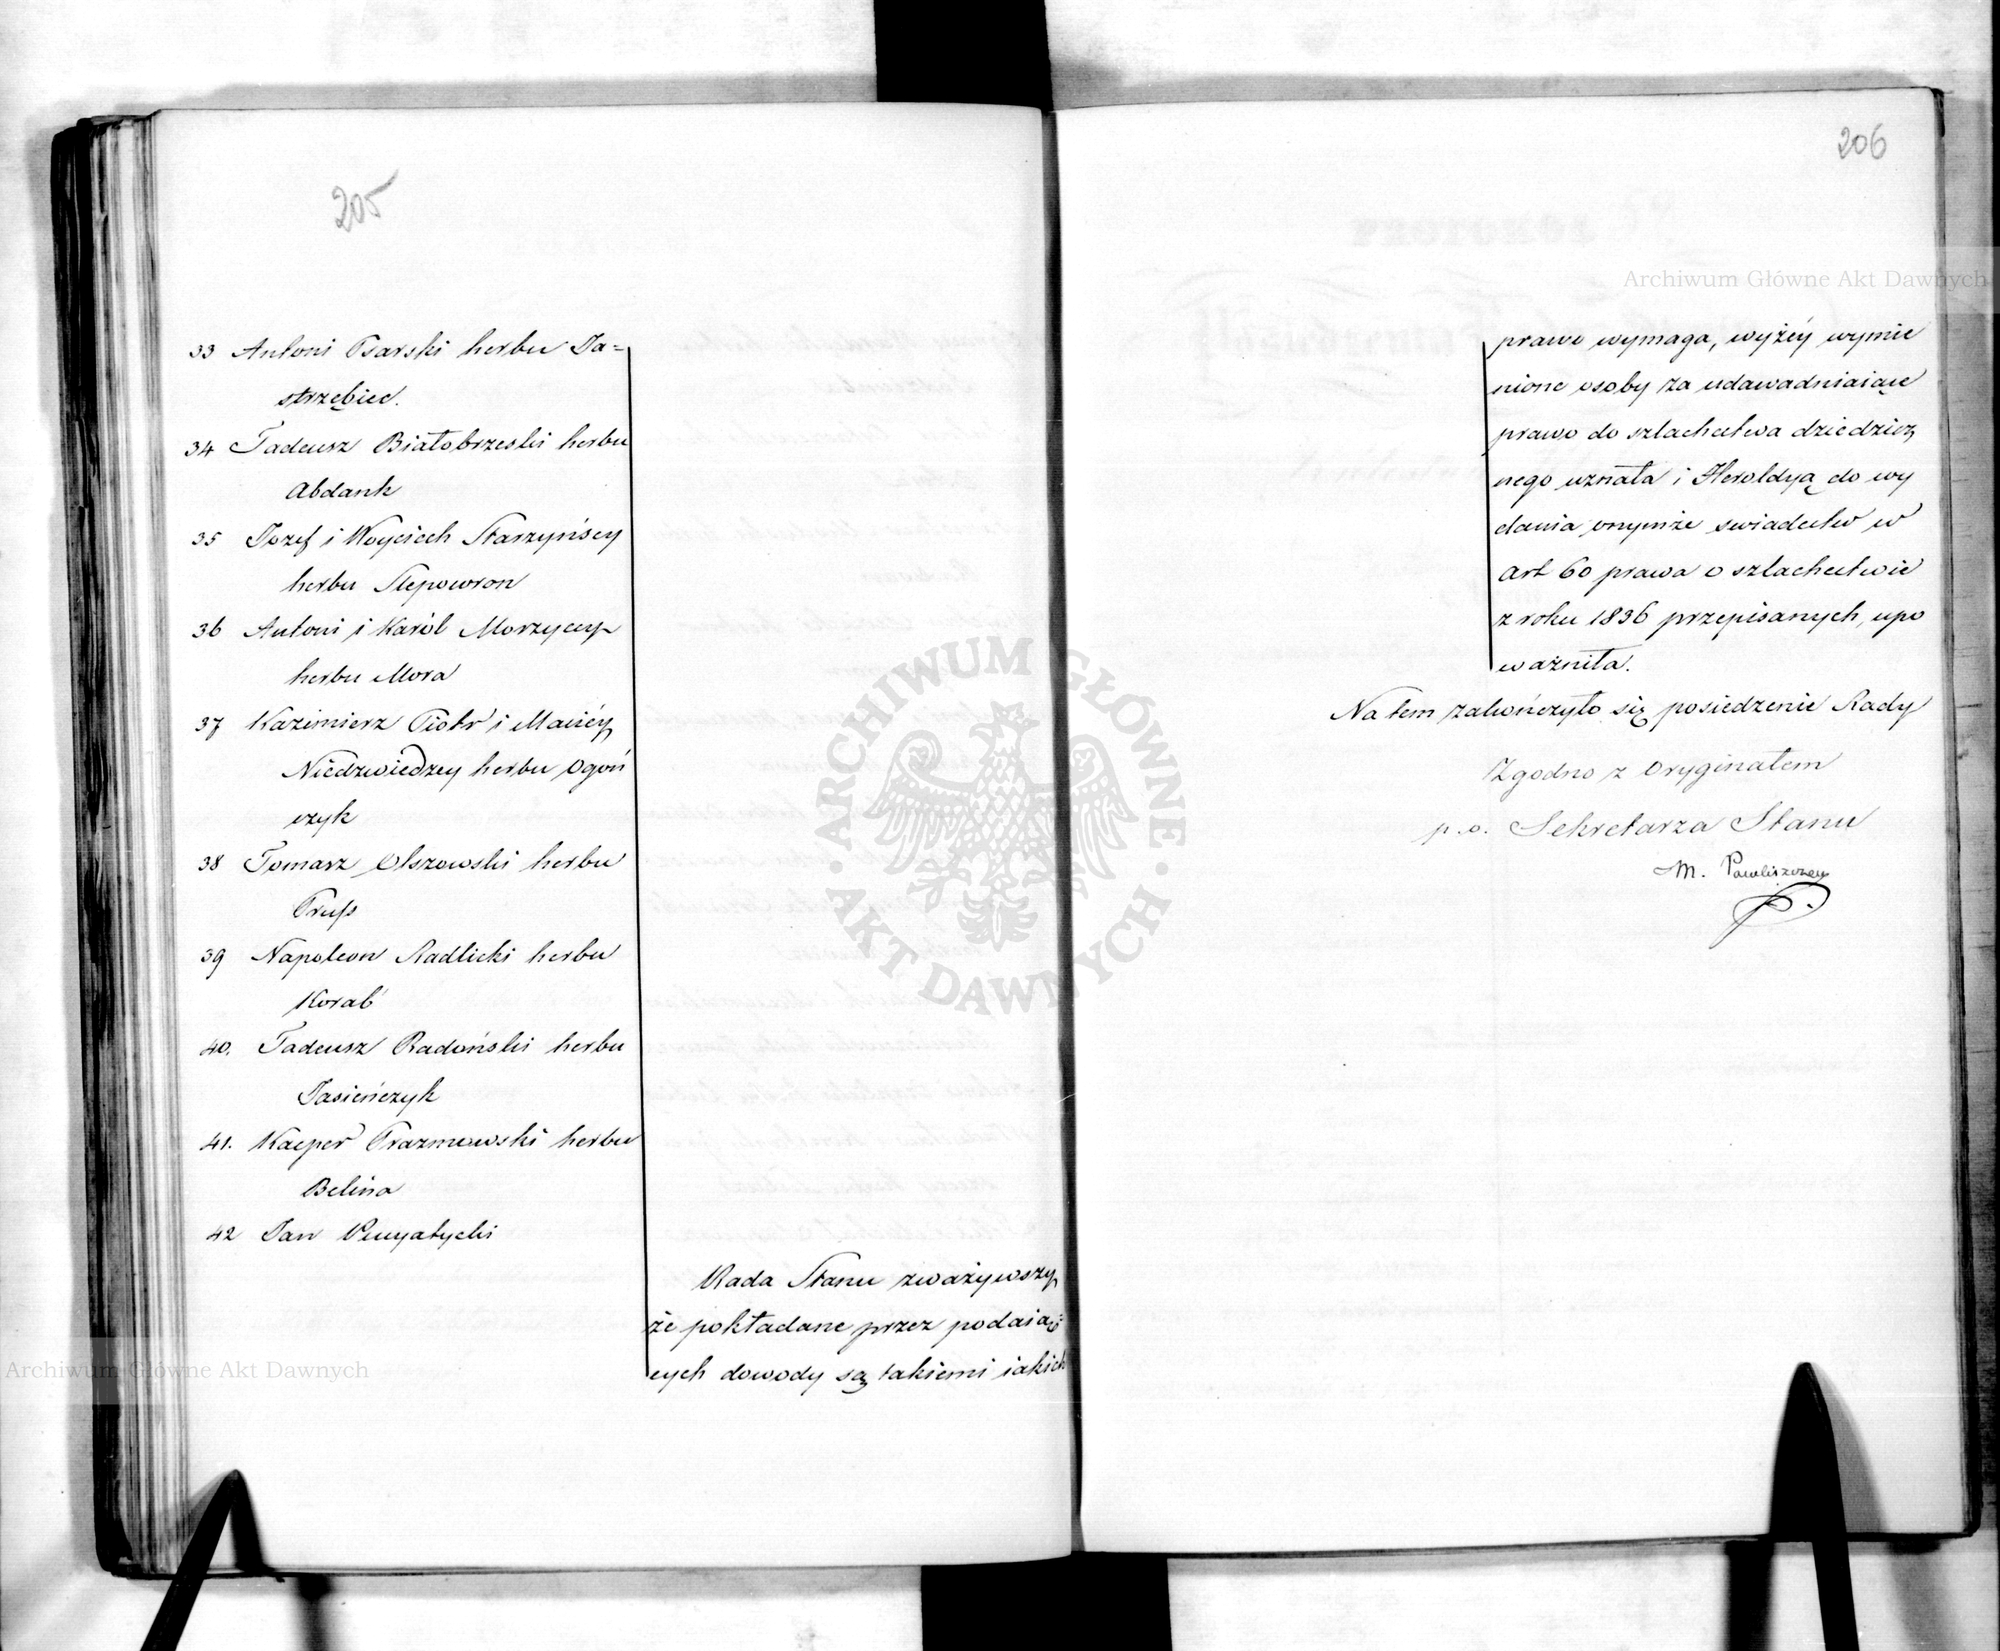 205
33 Antoni Psarski herbu Ja=
strzębiec.
34 Tadeusz Białobrzeski herbu
Abdank
35 Jozef i Woyciech Starzyńscy
herbu Slepowron
36 Antoni i Karól Morzyccy
herbu Mora
37 Kazimierz Piotr i Maciéy
Niedzwiedzcy herbu Ogoń
czyk
38 Tomasz Olszowski herbu
Pruss
39 Napoleon Radlicki herbu
Korab
40. Tadeusz Radoński herbu
Jasieńczyk
41. Kacper Prazmowski herbu
Belina
42 Jan
Rada Stanu zważywszy
że pokładane przez podaią=
cych dowody są takiemi iakich
206
prawo wymaga, wyżéy wymie
nione osoby za udawadniaiące
prawo do szlachectwa dziedzicz
nego uznała i Heroldyą do wy
dania onymże swiadectw w
Art 60 prawa o szlachectwie
z roku 1836 przepisanych, upo
ważniła.
Na tem zakończyło się posiedzenie Rady
Zgodno z Oryginałem
p.o. Sekretarza Stanu
M. Pawliszczew
Archiwum Główne Akt Dawnych
ARCHIWUM GŁÓWNE AKT DAWNYCH
Archiwum Główne Akt Dawnych